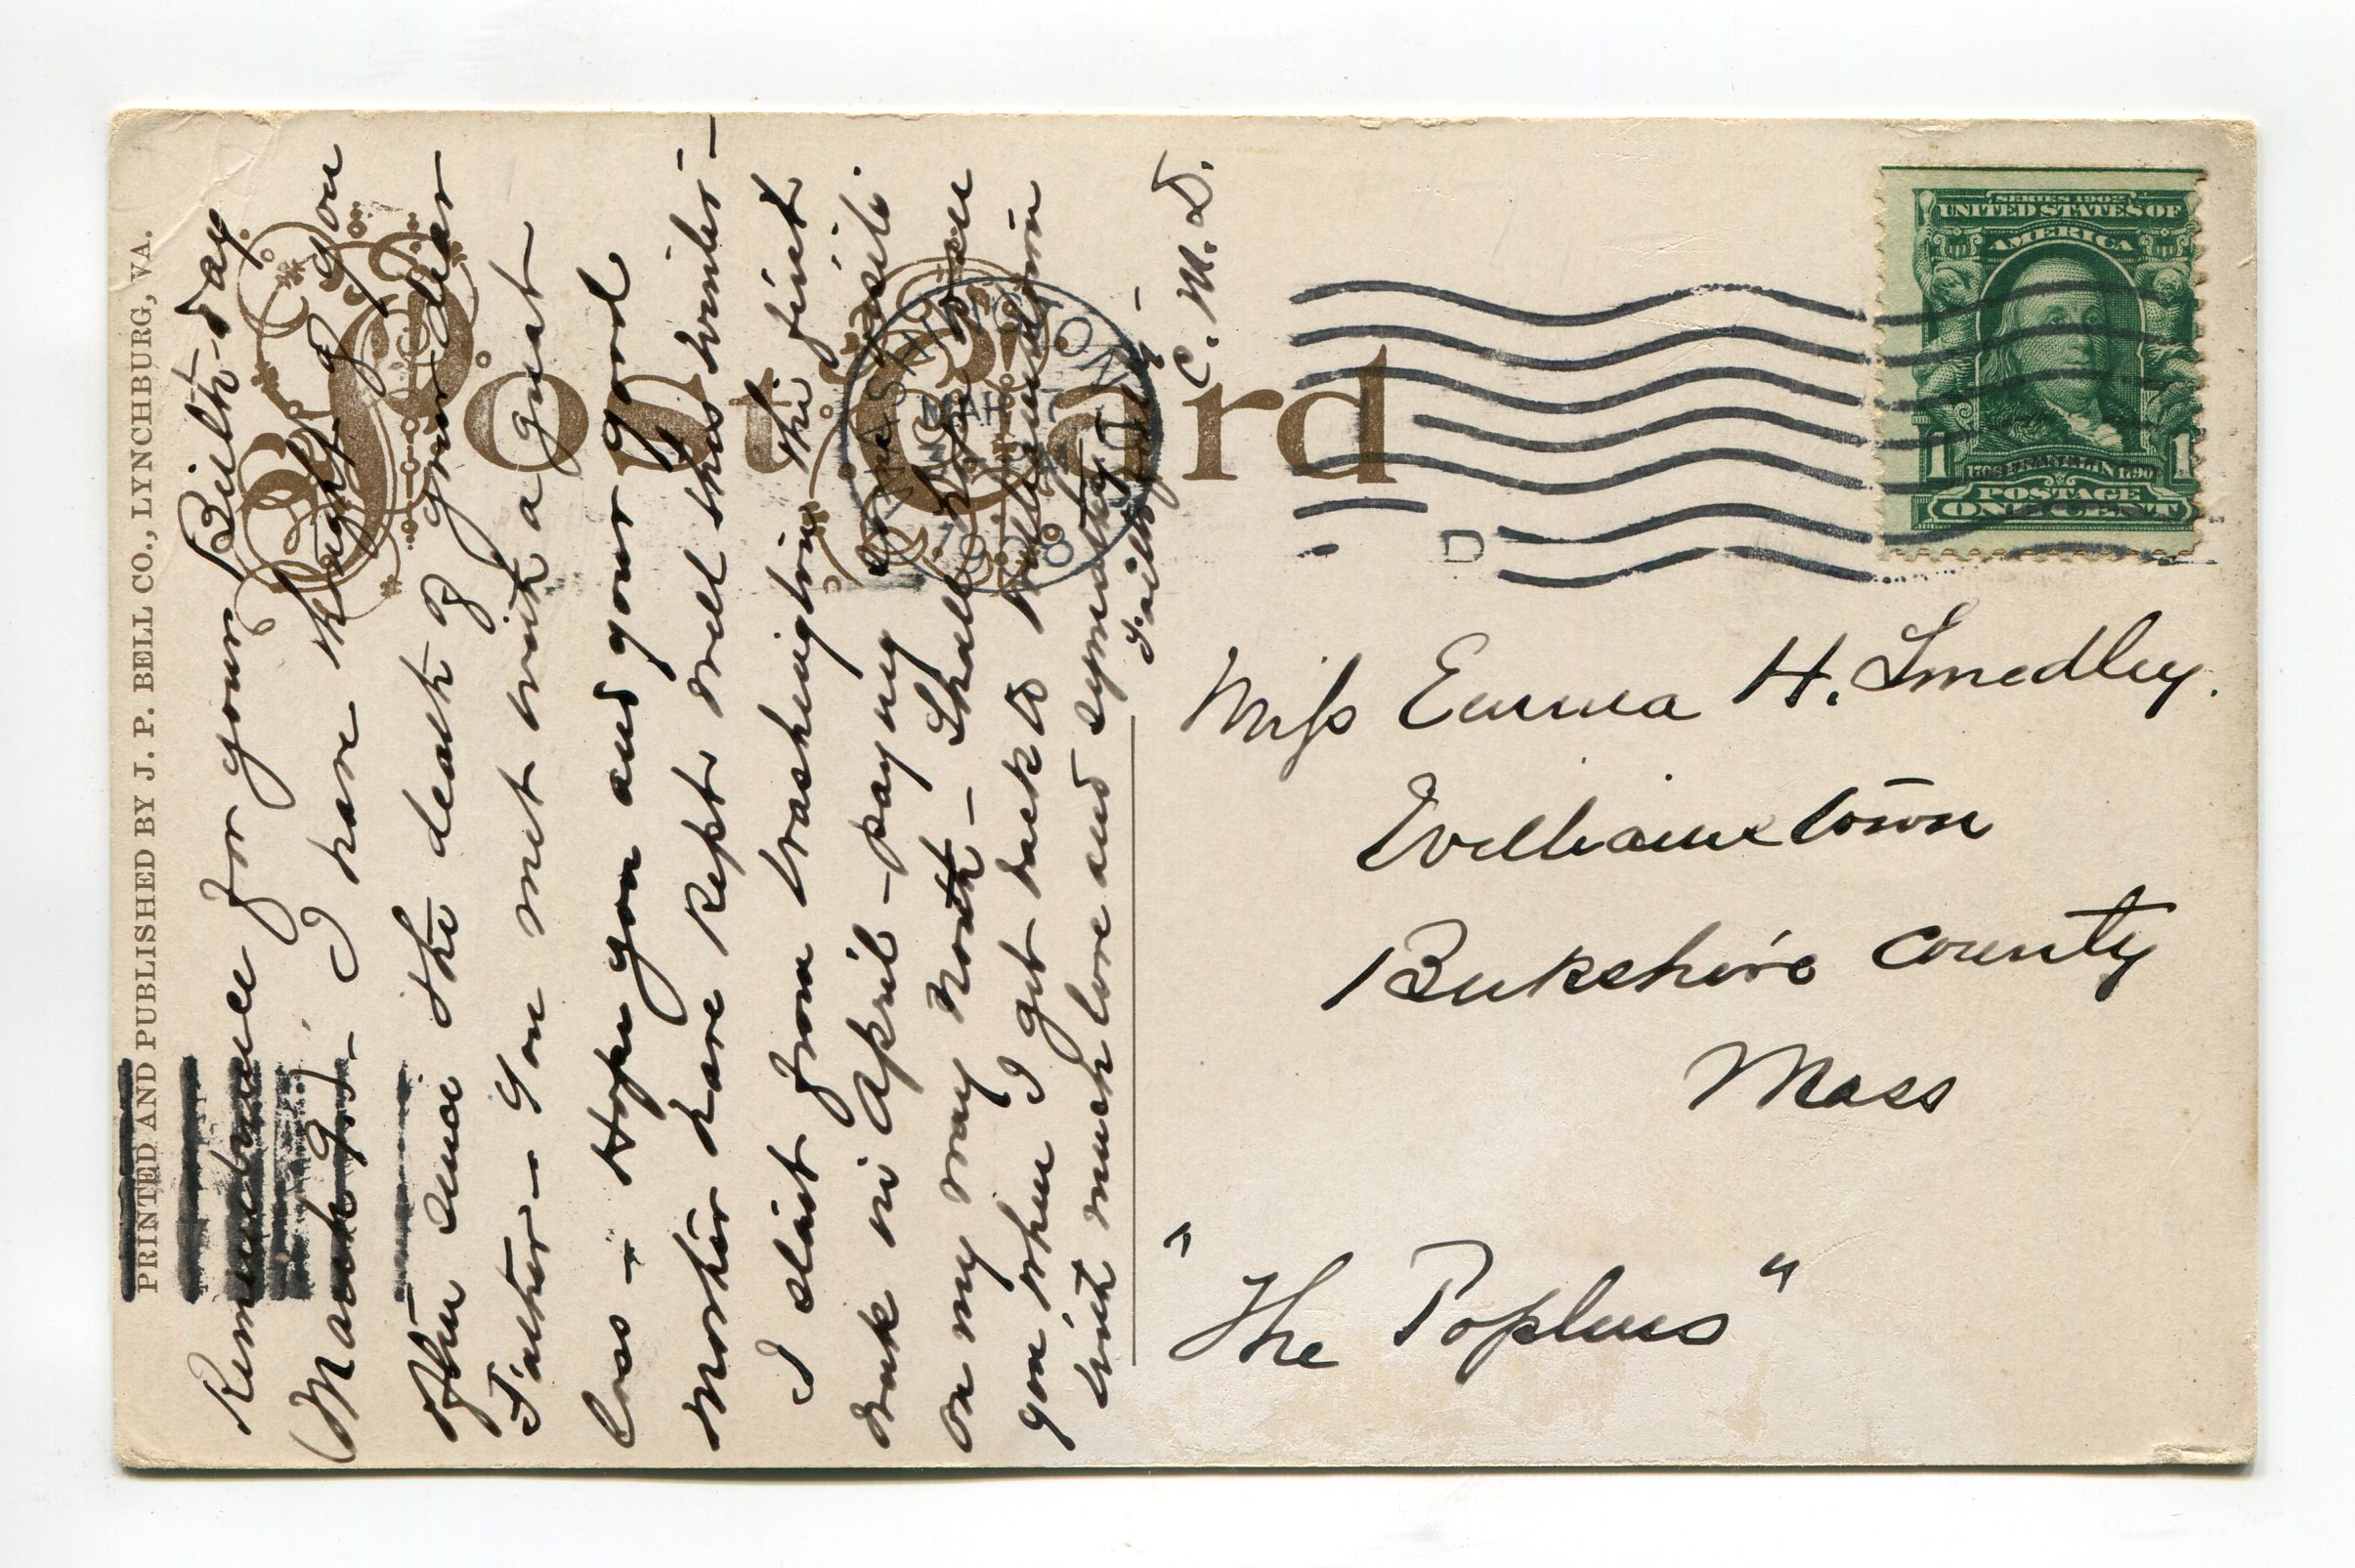 PRINTED AND PUBLISHED BY J. P. BELL CO., LYNCHBURG, VA.
Post Card
Remembrance for your Birth-day
(March 9th - I have thought of you
often since the death of your dear
Father - You met with a great
loss - Hope you and your good
Mother have kept well this winter -
I start from Washington the first
week in April - paying some visits
on my way north - Shall hope to see
you when I get back to Williamstown
with much love and sympathy
Faithfully -
C. M. D.
WASHINGTON, D.C.
MAR 7
1908
D
SERIES 1902
UNITED STATES OF
AMERICA
1 1
1706 FRANKLIN 1790
POSTAGE
ONE CENT
Miss Emma H. Smedley.
Williamstown
Berkshire County
Mass
"The Poplars"